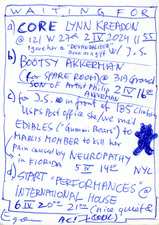 WAITING FOR
a) CORE LYNN KREADON
@ 121 W 27th 2 IV 2024
gave her a "DEVADANDER"
b) BOOTSY AKKERMAN
(for SPARE ROOM) @ 319 Ground
SON OF Artist Philip 2 IV 16
AKKERMAN
c) for J.S. in front of TBS Clinton
USPS Post office she/we mail
EDIBLES ("Gummi Bears") to
MARCIS MOMBER to kill her
pain caused by NEUROPATHY
in FLORIDA 5 IV 14 NYC
d) START "PERFORMANCES" @
INTERNATIONAL HOUSE
6 IV 20
ACT 7